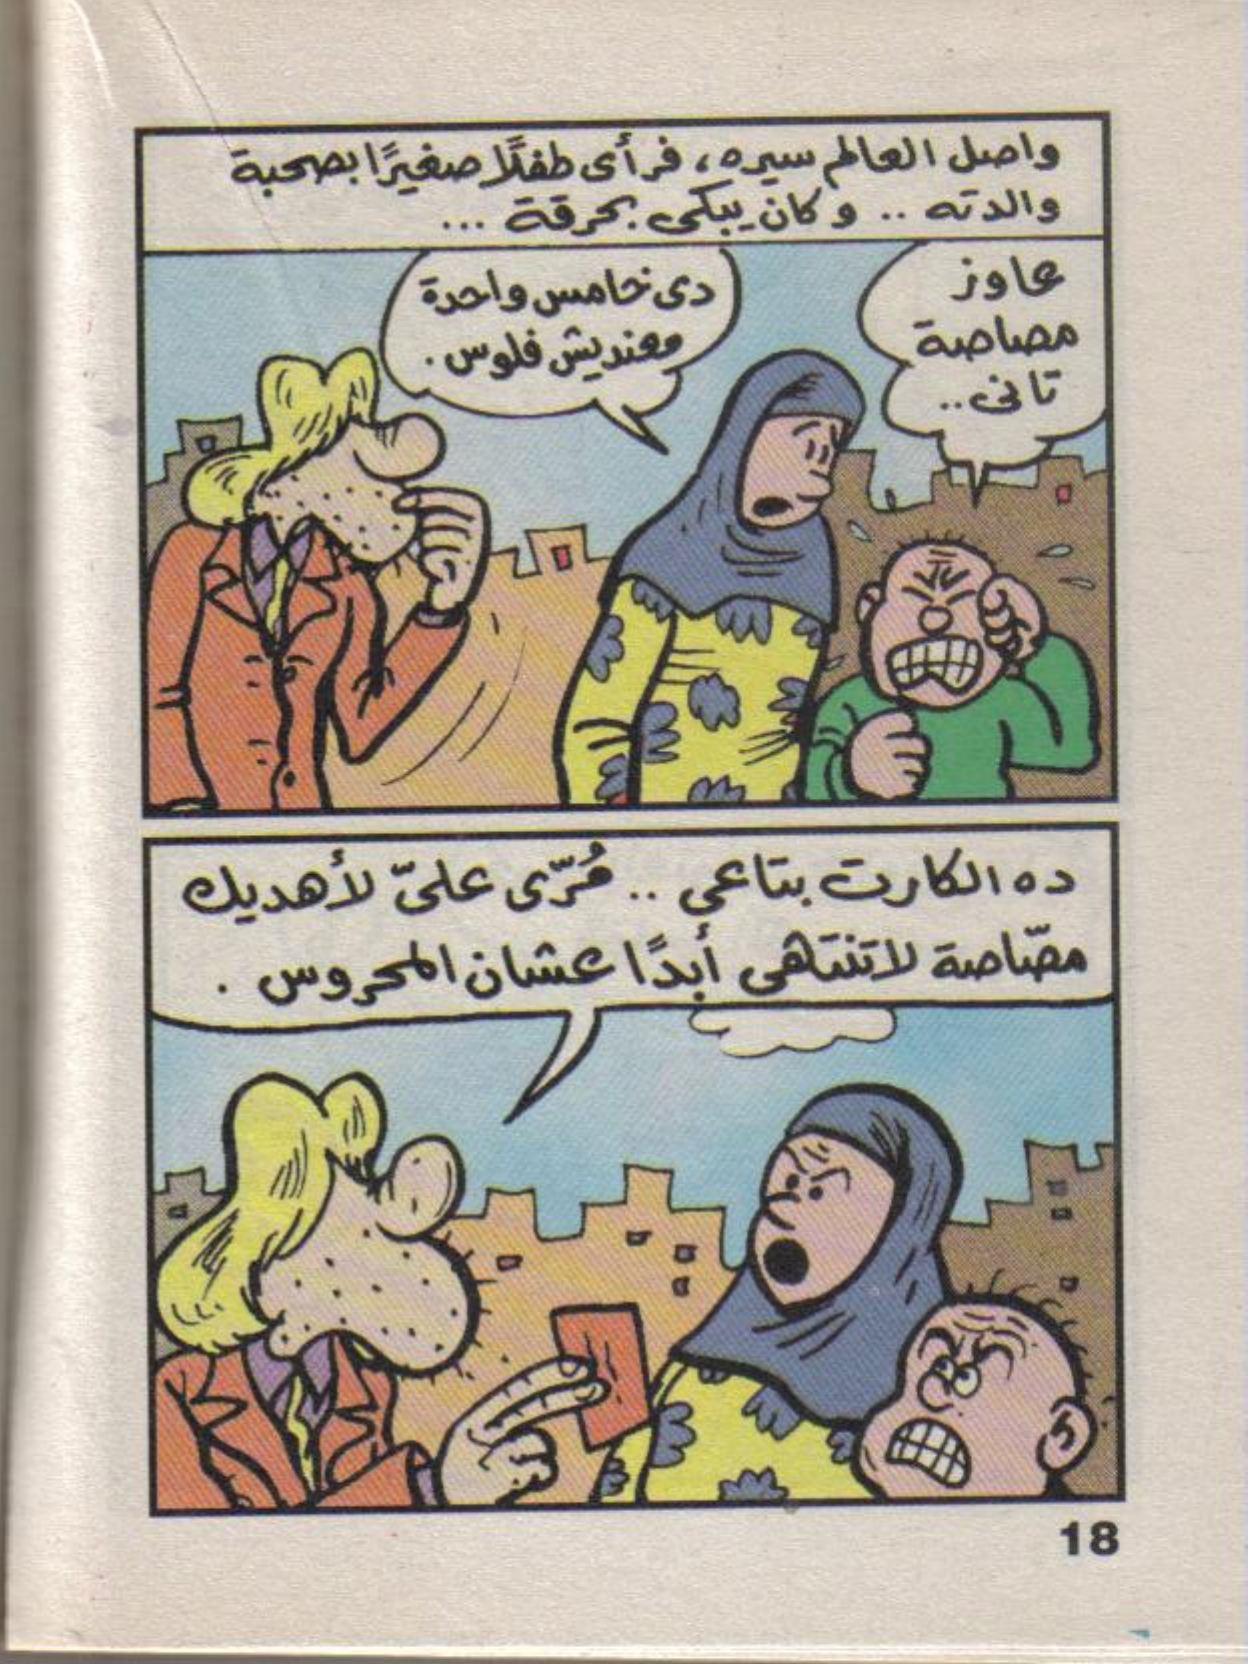 واصل العالم سيره، فرأى طفلًا صغيرًا بصحبة
والدته .. وكان يبكى بحرقة ...
عاوز
مصاصة
تانى..
دى خامس واحدة
معنديش فلوس .
ده الكارت بتاعى .. مُرّى علىّ لأهديك
مصّاصة لاتنتهى أبدًا عشان المحروس .
18